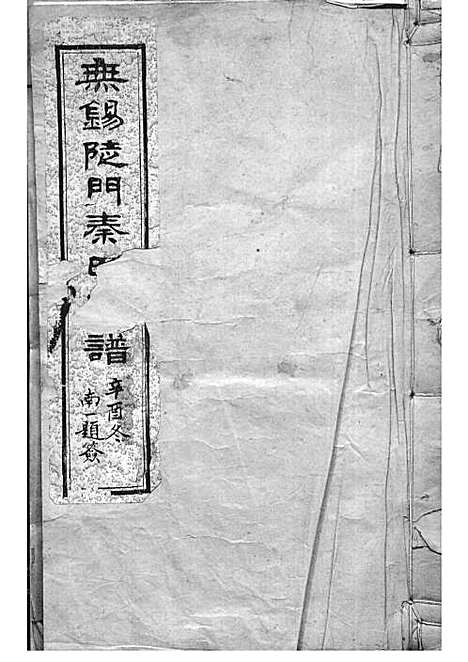 無錫陡門秦氏
譜
辛酉冬
南一題簽